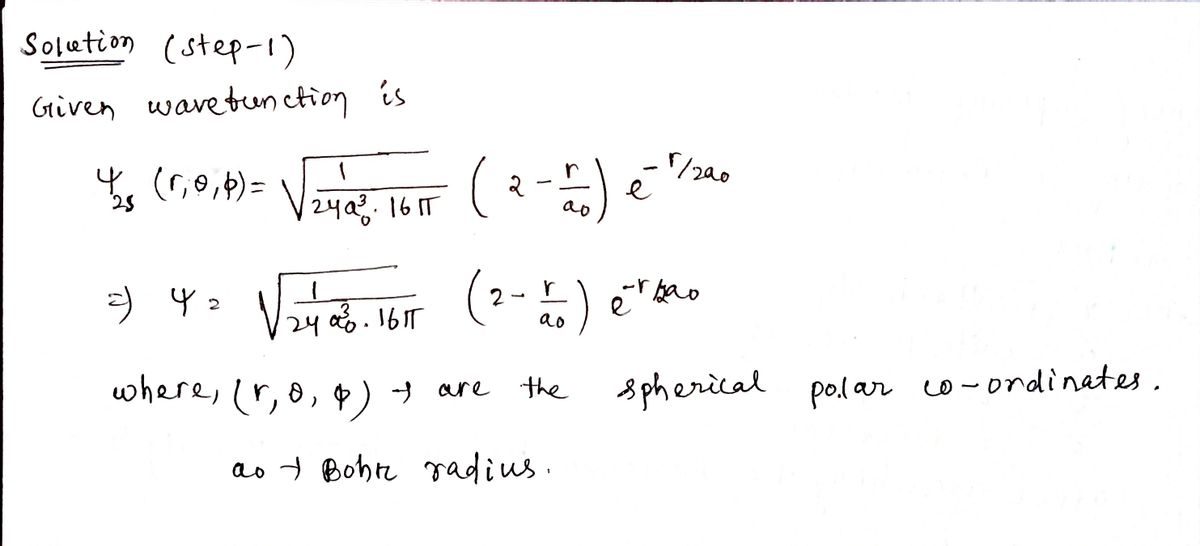 Solution (step-1)
Given wavefunction is
Ψ2s (r,θ,ϕ) = √(1/(24a0³. 16π)) (2 - r/a0) e^(-r/2a0)
⇒ Ψ = √(1/(24a0³. 16π)) (2 - r/a0) e^(-r/2a0)
where, (r, θ, ϕ) → are the spherical polar co-ordinates.
a0 → Bohr radius.